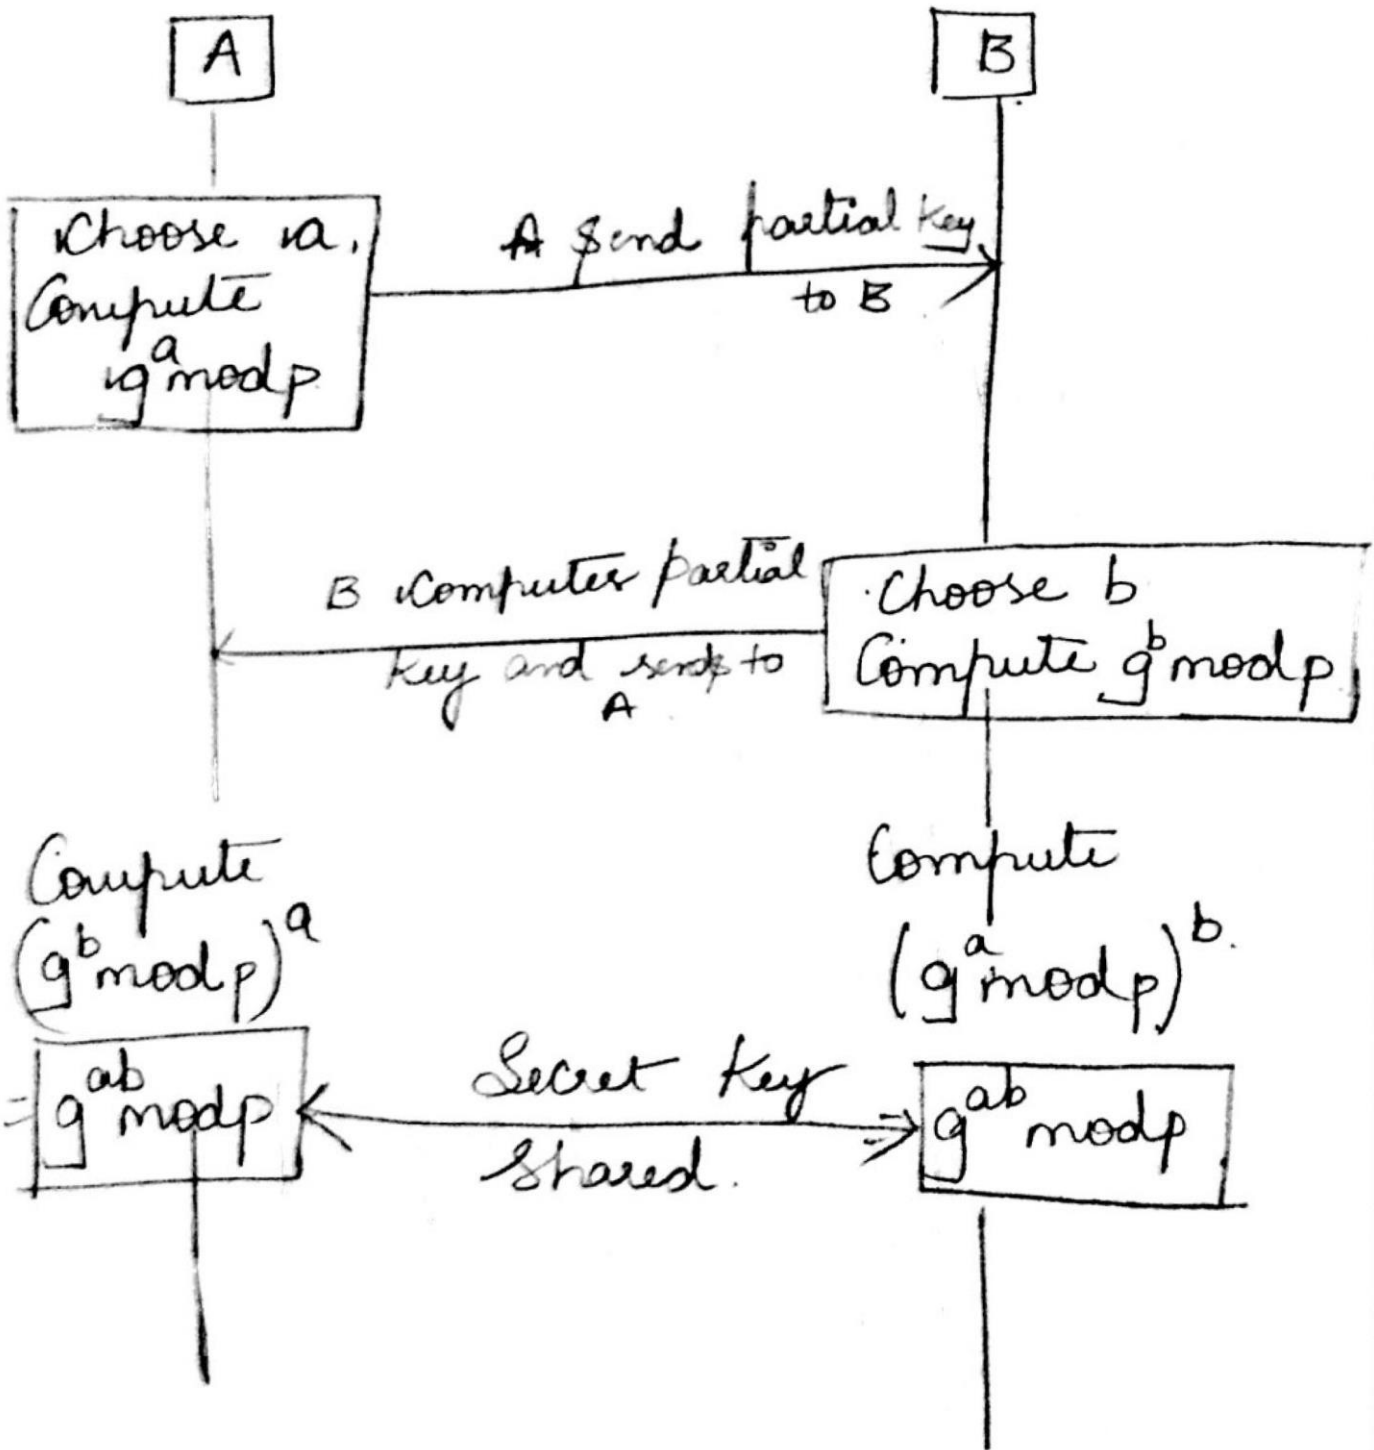 A
B
Choose a.
Compute
g^a mod p
A Send partial key
to B
B Computes partial
key and sends to
A
Choose b
Compute g^b mod p
Compute
(g^b mod p)^a
= g^ab mod p
Compute
(g^a mod p)^b.
g^ab mod p
Secret Key
Shared.